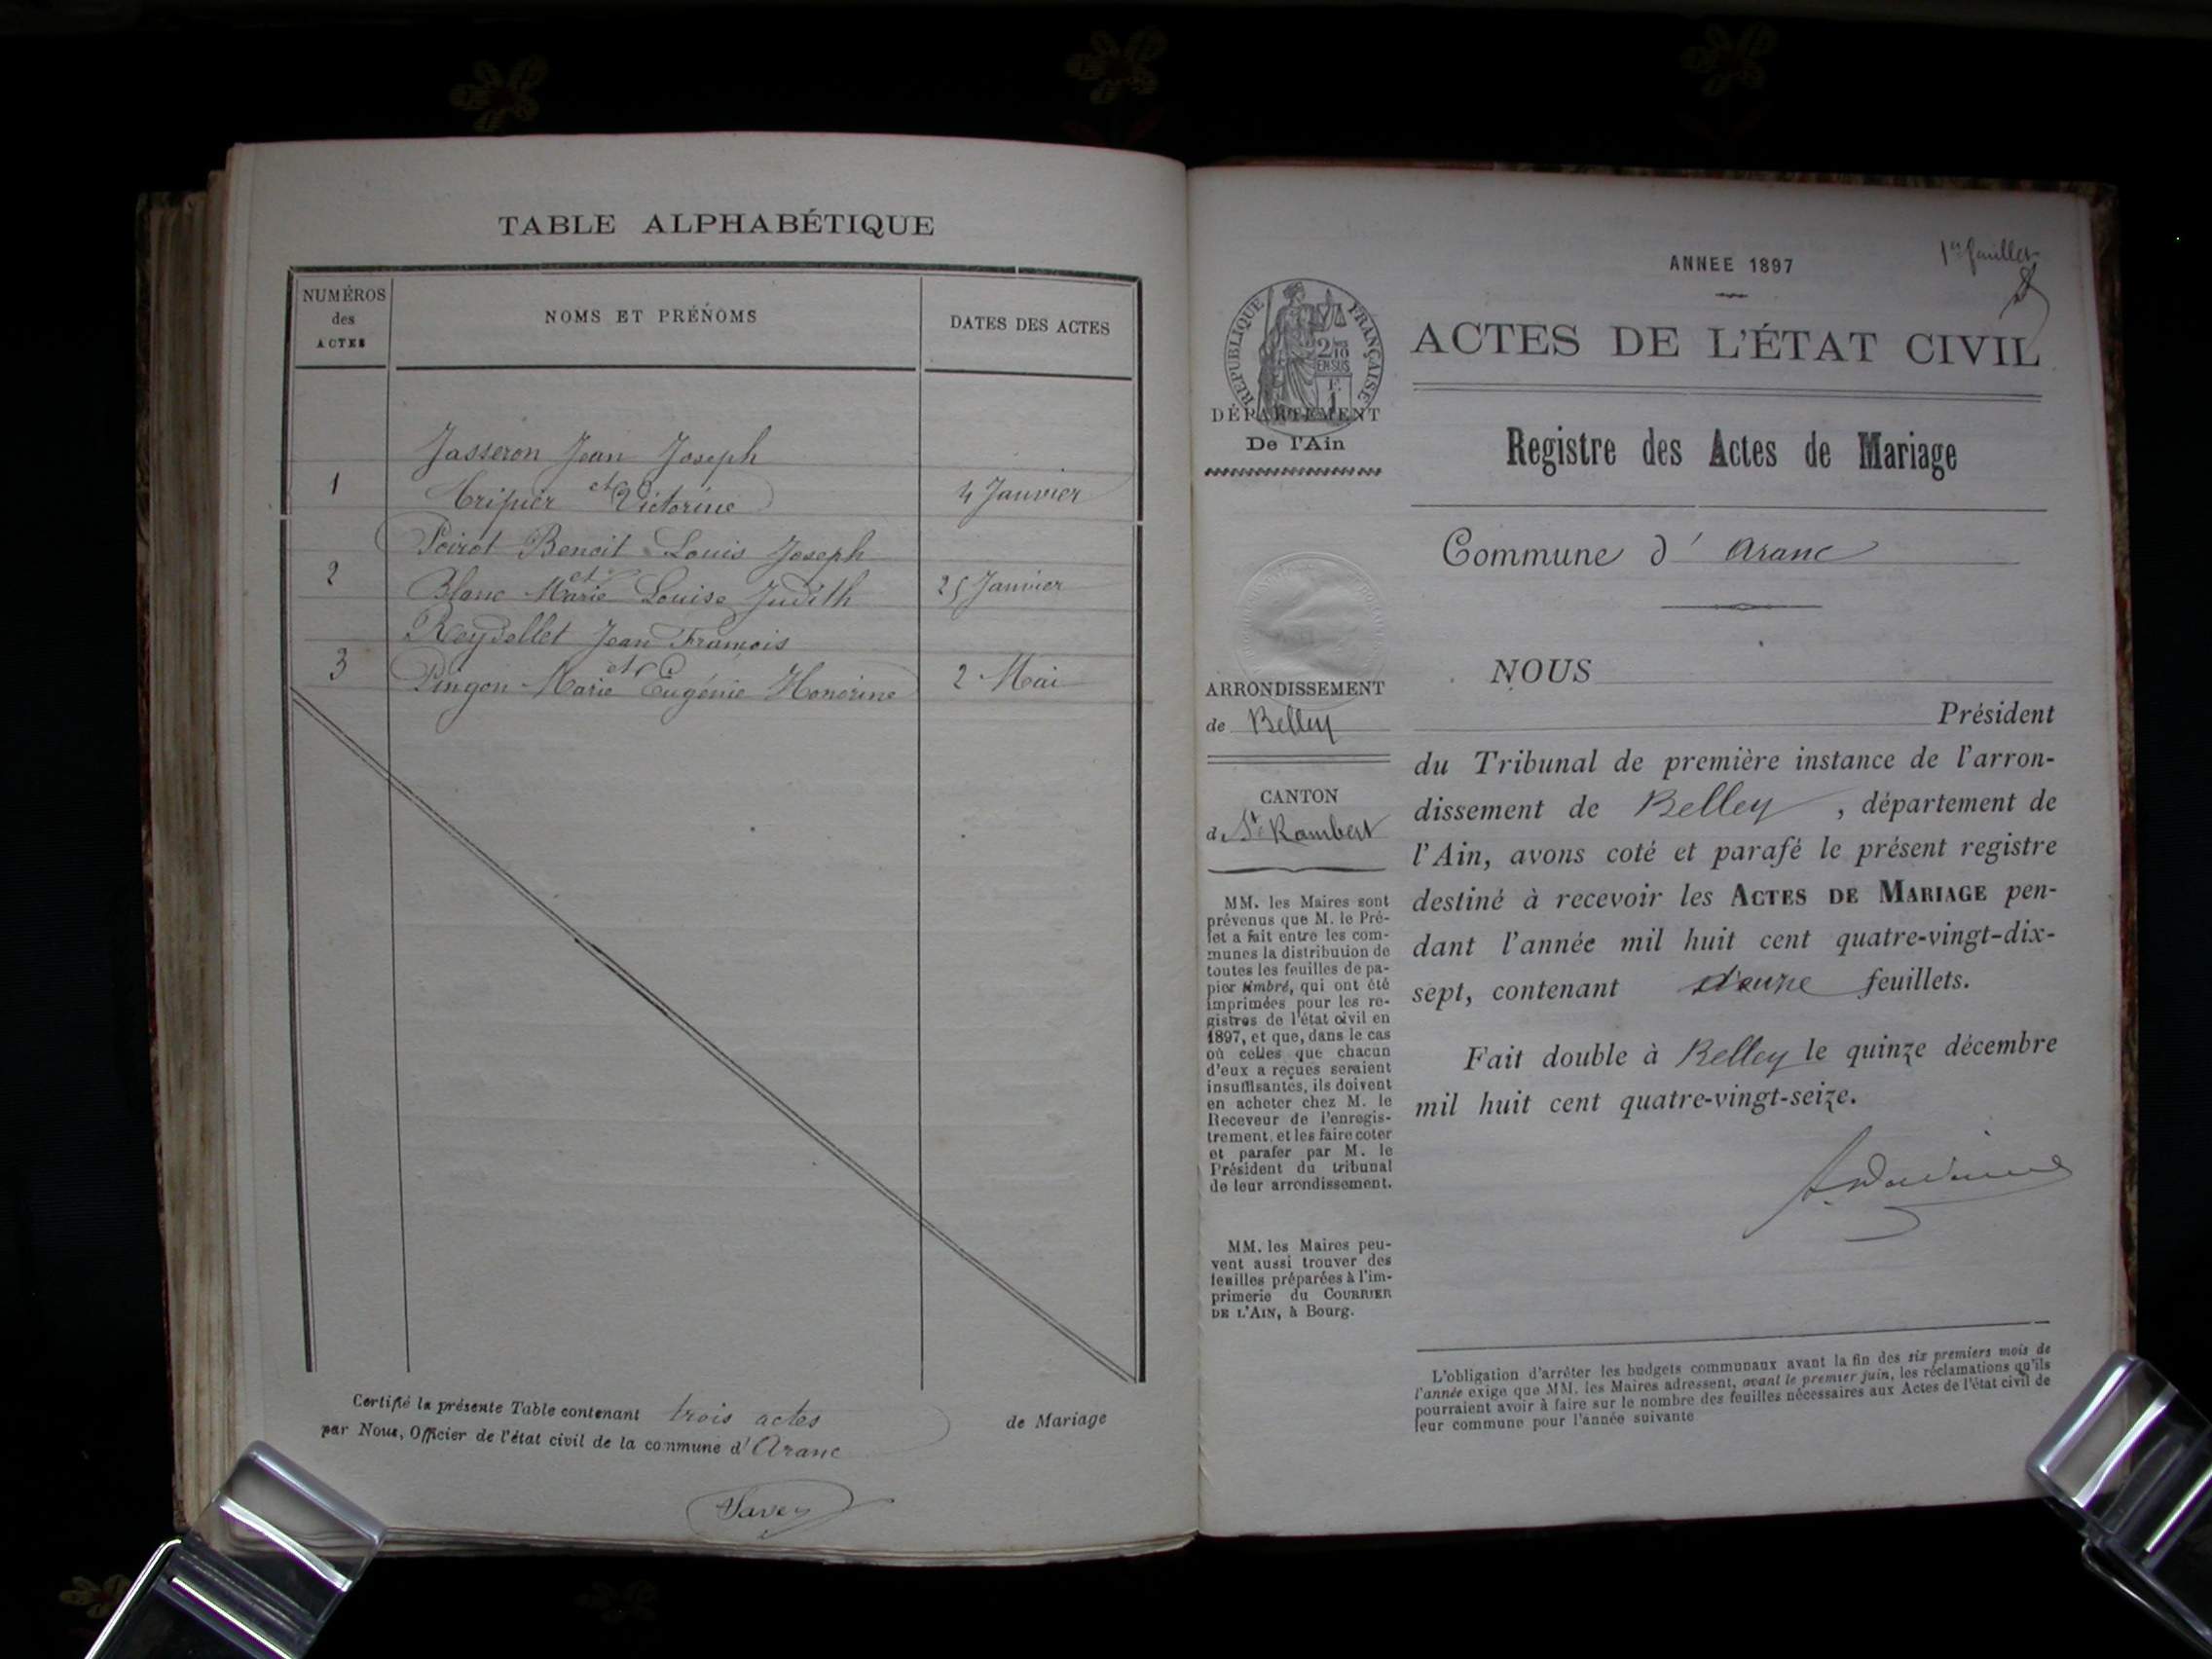 TABLE ALPHABÉTIQUE
NUMÉROS
des
ACTES
NOMS ET PRÉNOMS
DATES DES ACTES
Jasseron Jean Joseph
1 et 4 Janvier
Tripier Victorine
Poirot Benoit Louis Joseph
2 et 25 Janvier
Blanc Marie Louise Judith
Reydellet Jean François
3 et 2 Mai
Pingon Marie Eugénie Honorine
Certifié la présente Table contenant trois actes de Mariage
par Nous, Officier de l'état civil de la commune d' Aranc
Savey
1er feuillet
ANNEE 1897
RÉPUBLIQUE FRANÇAISE
2/10
EN SUS
ACTES DE L'ÉTAT CIVIL
DÉPARTEMENT
De l'Ain
Registre des Actes de Mariage
Commune d' Aranc
ARRONDISSEMENT
de Belley
CANTON
de St Rambert
MM. les Maires sont
prévenus que M. le Pré-
fet a fait entre les com-
munes la distribution de
toutes les feuilles de pa-
pier timbré, qui ont été
imprimées pour les re-
gistres de l'état civil en
1897, et que, dans le cas
où celles que chacun
d'eux a reçues seraient
insuffisantes, ils doivent
en acheter chez M. le
Receveur de l'enregis-
trement, et les faire coter
et parafer par M. le
Président du tribunal
de leur arrondissement.
MM. les Maires peu-
vent aussi trouver des
feuilles préparées à l'im-
primerie du COURRIER
DE L'AIN, à Bourg.
NOUS
Président
du Tribunal de première instance de l'arron-
dissement de Belley, département de
l'Ain, avons coté et parafé le présent registre
destiné à recevoir les ACTES DE MARIAGE pen-
dant l'année mil huit cent quatre-vingt-dix-
sept, contenant feuillets.
Fait double à Belley le quinze décembre
mil huit cent quatre-vingt-seize.
L'obligation d'arrêter les budgets communaux avant la fin des six premiers mois de
l'année exige que MM. les Maires adressent, avant le premier juin, les réclamations qu'ils
pourraient avoir à faire sur le nombre des feuilles nécessaires aux Actes de l'état civil de
leur commune pour l'année suivante